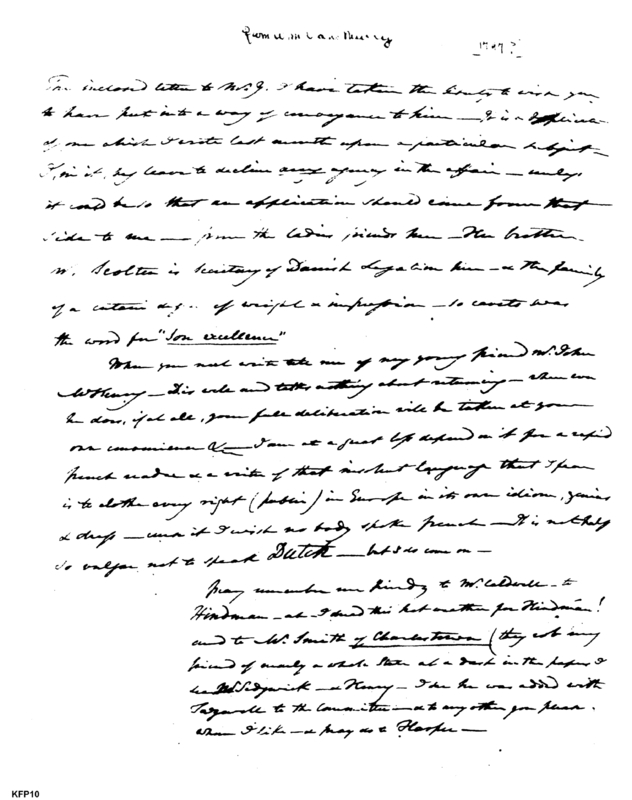 from Wm Vans Murray
1797?
The inclosed letter to Mr. J. I have taken the liberty to wish you
to have put into a way of conveyance to him — It is a duplicate
of one which I wrote last month upon a particular subject —
I, in it, beg leave to decline any agency in the affair — unless
it could be so that an application should come from that
side to me — from the ladies friends here — Her brother
is Secretary of Danish Legation here — & the family
of a certain of weight & impression — so was
the word for "Son excellence"
When you next write tell me of my young friend Mr. John
McHenry — and talks nothing about returning — when
he does, if at all, your full deliberation will be taken at your
own convenience — I am at a great loss depend on it for a rapid
french reader & a writer of that insolent language that I fear
is to clothe every right (public) in Europe in its own idiom, genius
& dress — curse it I wish no body spoke french — It is not half
so vulgar not to speak Dutch — but I do come on —
Pray remember me kindly to Mr. Caldwell — to
Hindman — ah I dread this hot weather for Hindman!
and to Mr. Smith of Charlestown (they rob my
friend of nearly a whole State at a dash in the papers I
see Sedgwick — & Henry — I see he was added with
Tazewell to the Committee — & to any other you please.
whom I like — & pray do to Harper —
KFP10